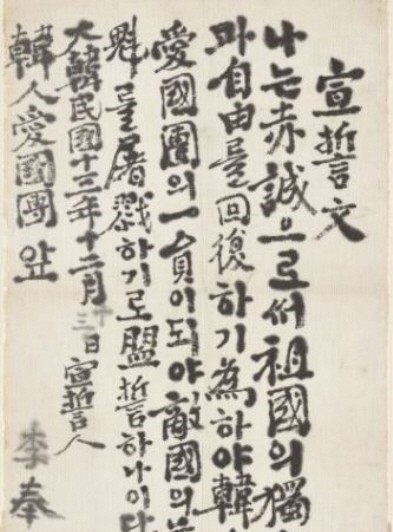 宣誓文
나는赤誠으로써祖國의獨
과自由를回復하기爲하야韓
愛國團의一員이되야敵國의
魁를屠戮하기로盟誓하나이다
大韓民國十三年十二月十三日 宣誓人
韓人愛國團앞 李奉